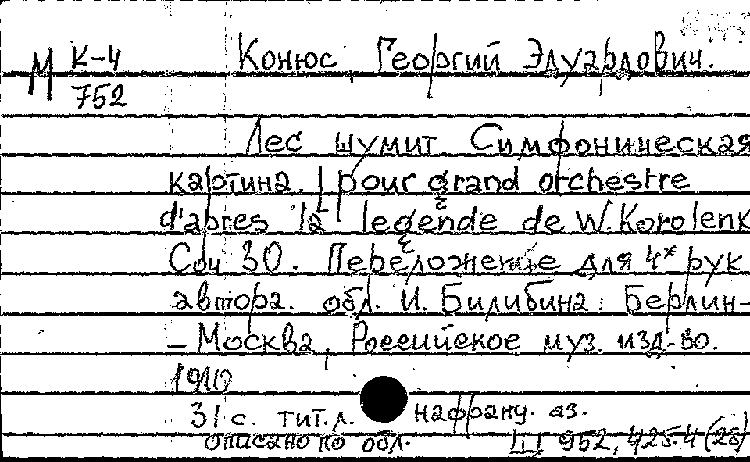 М К-4 Конюс, Георгий Эдуардович.
752
Лес шумит. Симфоническая
картина. | pour grand orchestre
d'apres la legende de W. Korolenk
Соч 30. Переложение для 4х рук
автора. обл. И. Билибина. Берлин-
- Москва, Российское муз. изд-во.
1910
31 с. тит. л. на франц. яз.
описано по обл. Ш 952, 425.4 (28)